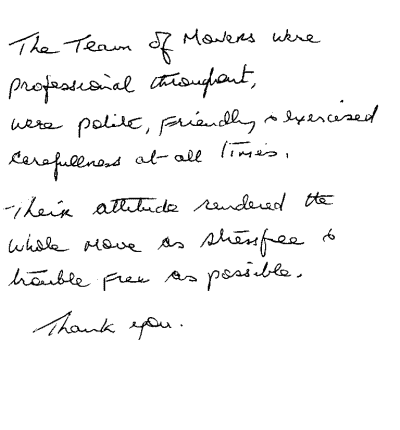 The Team of Movers were
professional throughout,
were polite, friendly & exercised
carefullness at all times.
Their attitude rendered the
whole move as stressfree &
trouble free as possible.
Thank you.